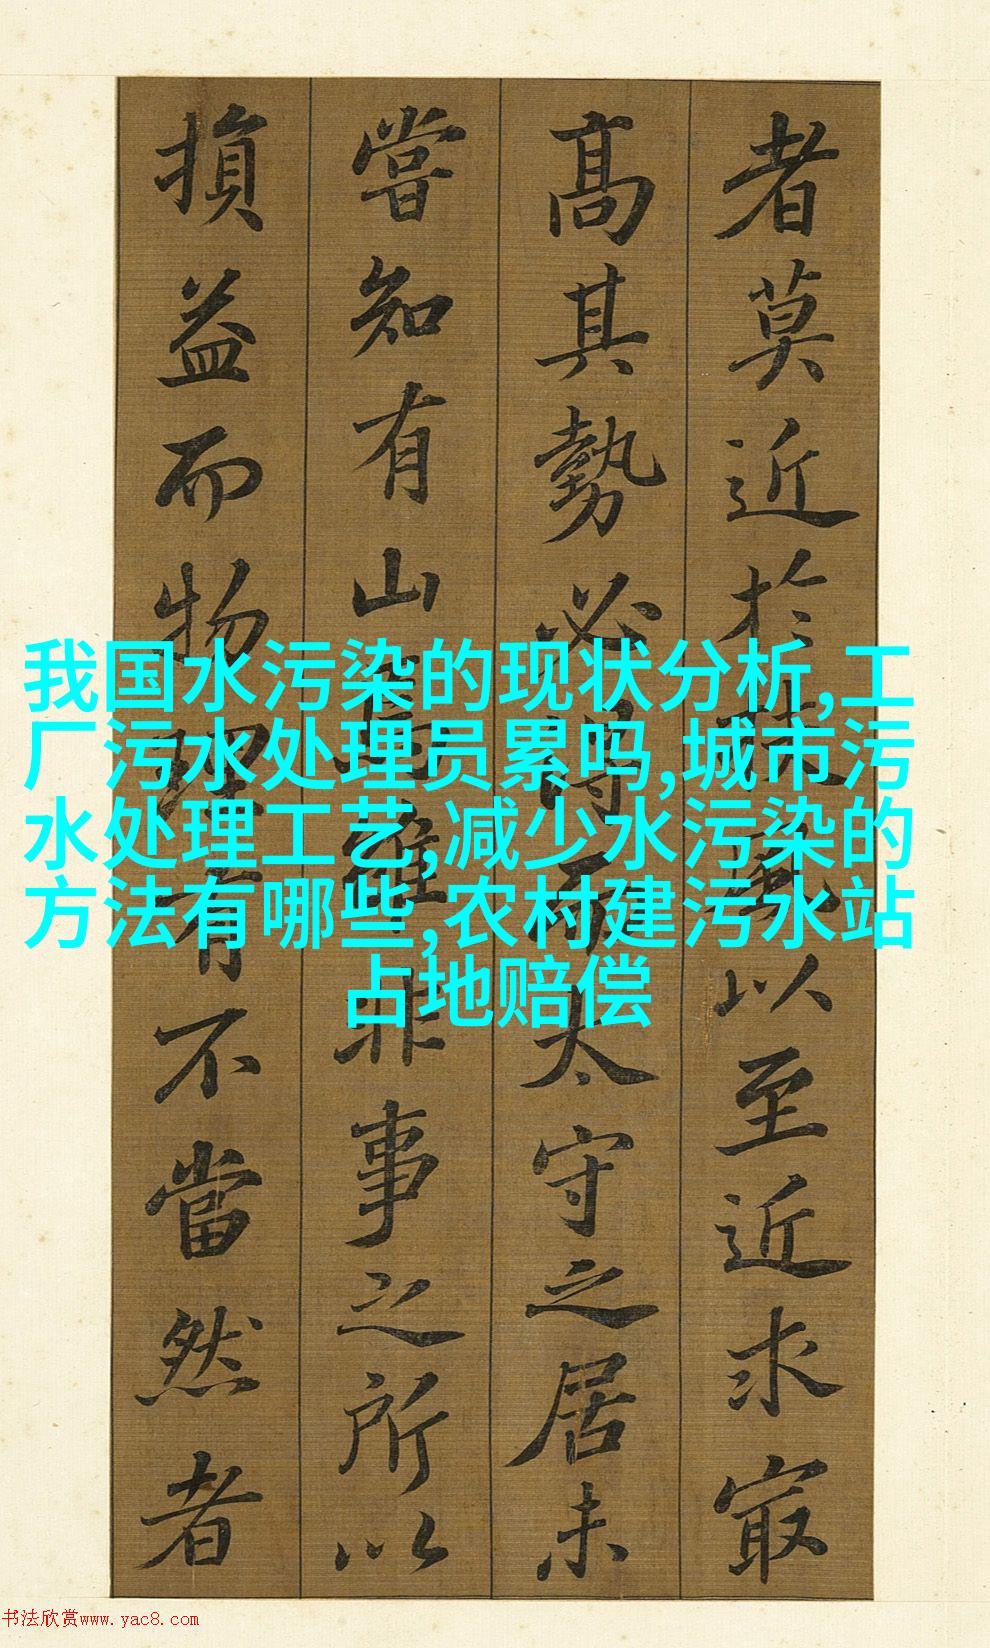 者莫近於扶風以至近求㝡
高其勢必得而太守之居未
嘗知有山焉雖非事之所以
損益而物理有不當然者
我国水污染的现状分析,工
厂污水处理员累吗,城市污
水处理工艺,减少水污染的
方法有哪些,农村建污水站
占地赔偿
书法欣赏www.yac8.com